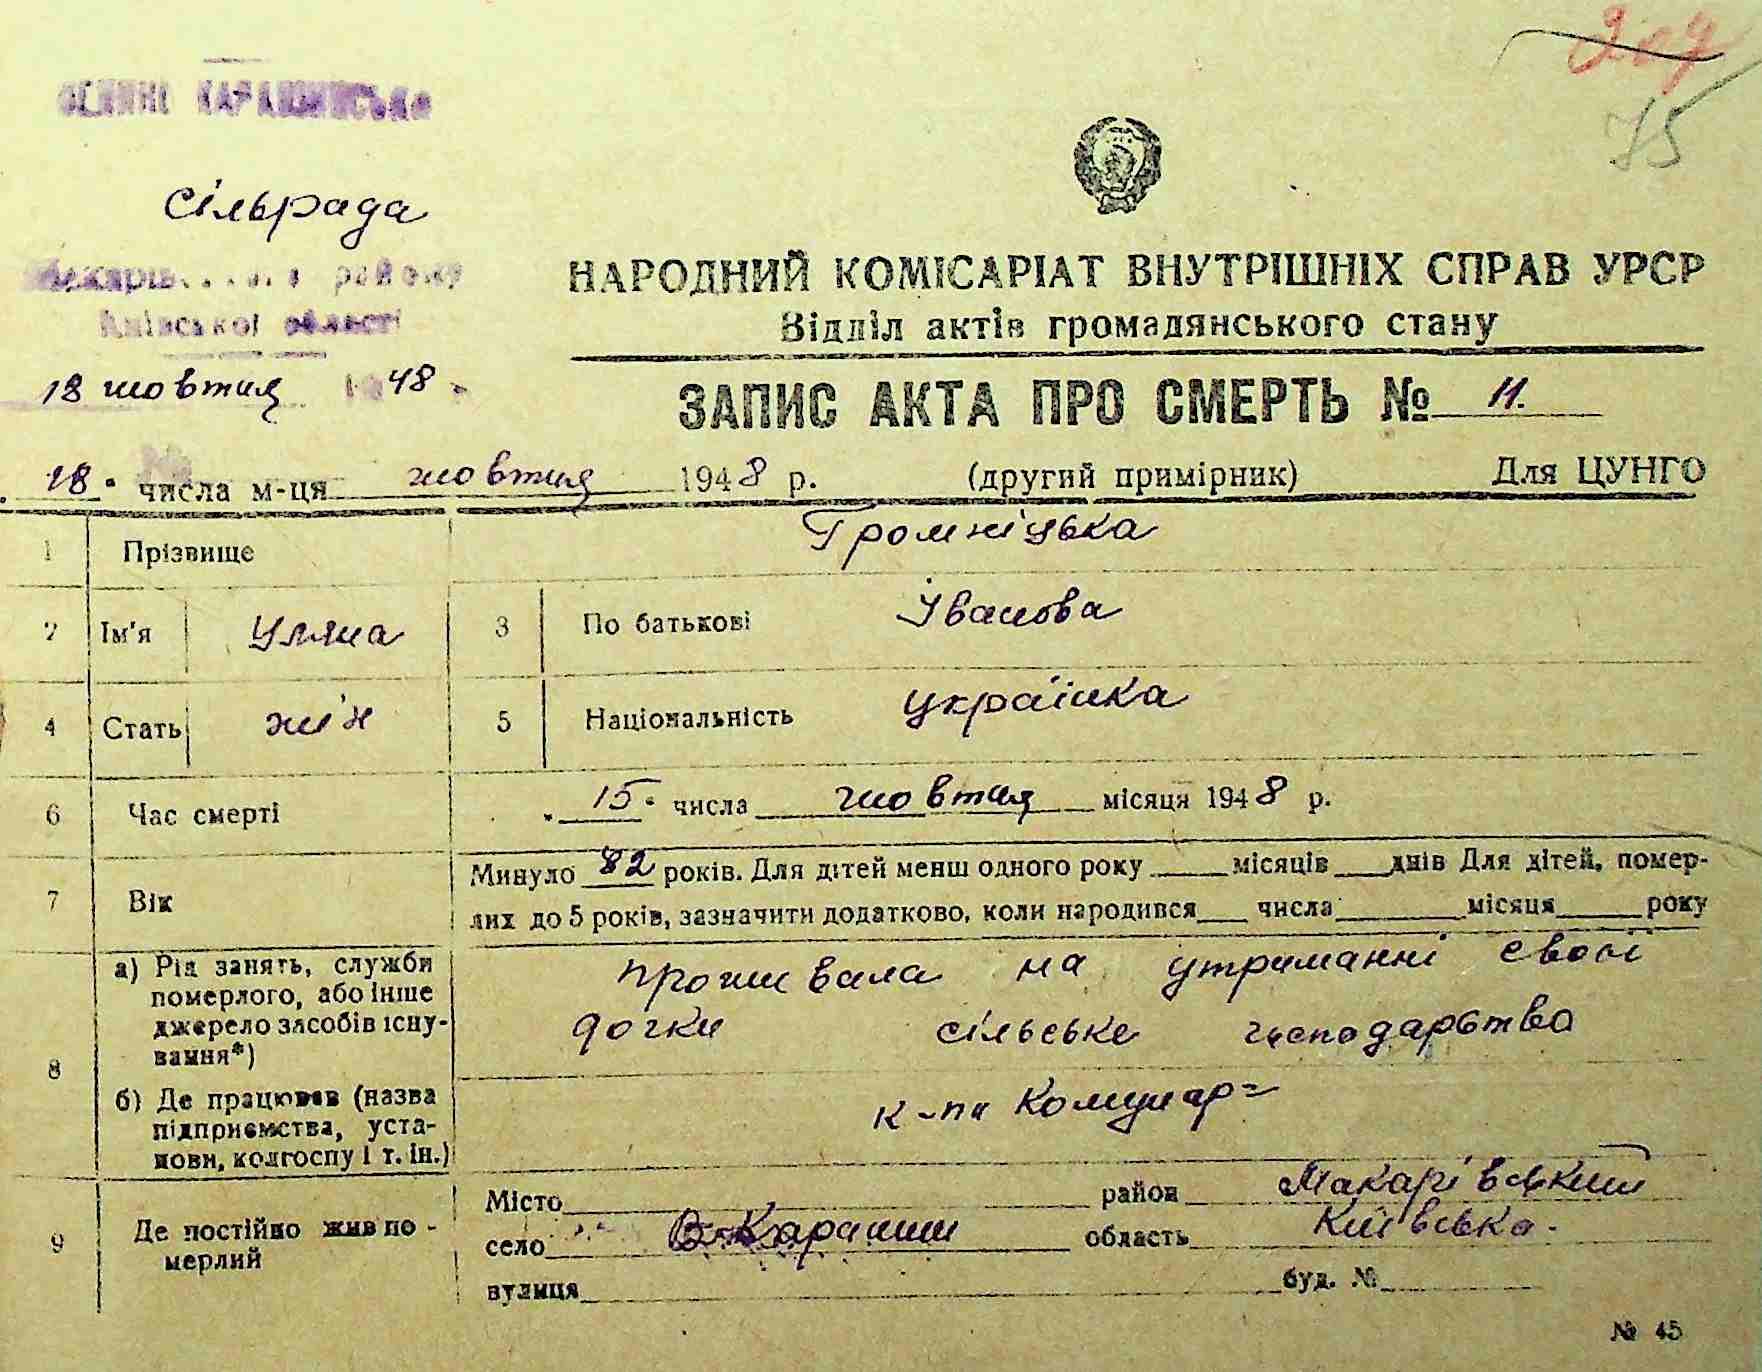 75
КАРАШИНСЬКА
сільрада
району
Київської області
18 жовтня 1948.
НАРОДНИЙ КОМІСАРІАТ ВНУТРІШНІХ СПРАВ УРСР
Відділ актів громадянського стану
ЗАПИС АКТА ПРО СМЕРТЬ № 11.
18. числа м-ця жовтня 1948 р. (другий примірник) Для ЦУНГО
1 Прізвище Громніцька
2 Ім'я Уляна 3 По батькові Іванова
4 Стать жін 5 Національність українка
6 Час смерті 15. числа жовтня місяця 1948 р.
7 Вік Минуло 82 років. Для дітей менш одного року місяців днів Для дітей, помер-
лих до 5 років, зазначити додатково, коли народився числа місяця року
8 а) Рід занять, служби
померлого, або інше
джерело засобів існу-
вання*)
проживала на утриманні своєї
дочки сільське господарство
б) Де працював (назва
підприємства, уста-
нови, колгоспу і т. ін.)
к-п Комунар
9 Де постійно жив по-
мерлий
Місто район Макарівський
село В-Карашин область Київська.
вулиця буд. №
№ 45